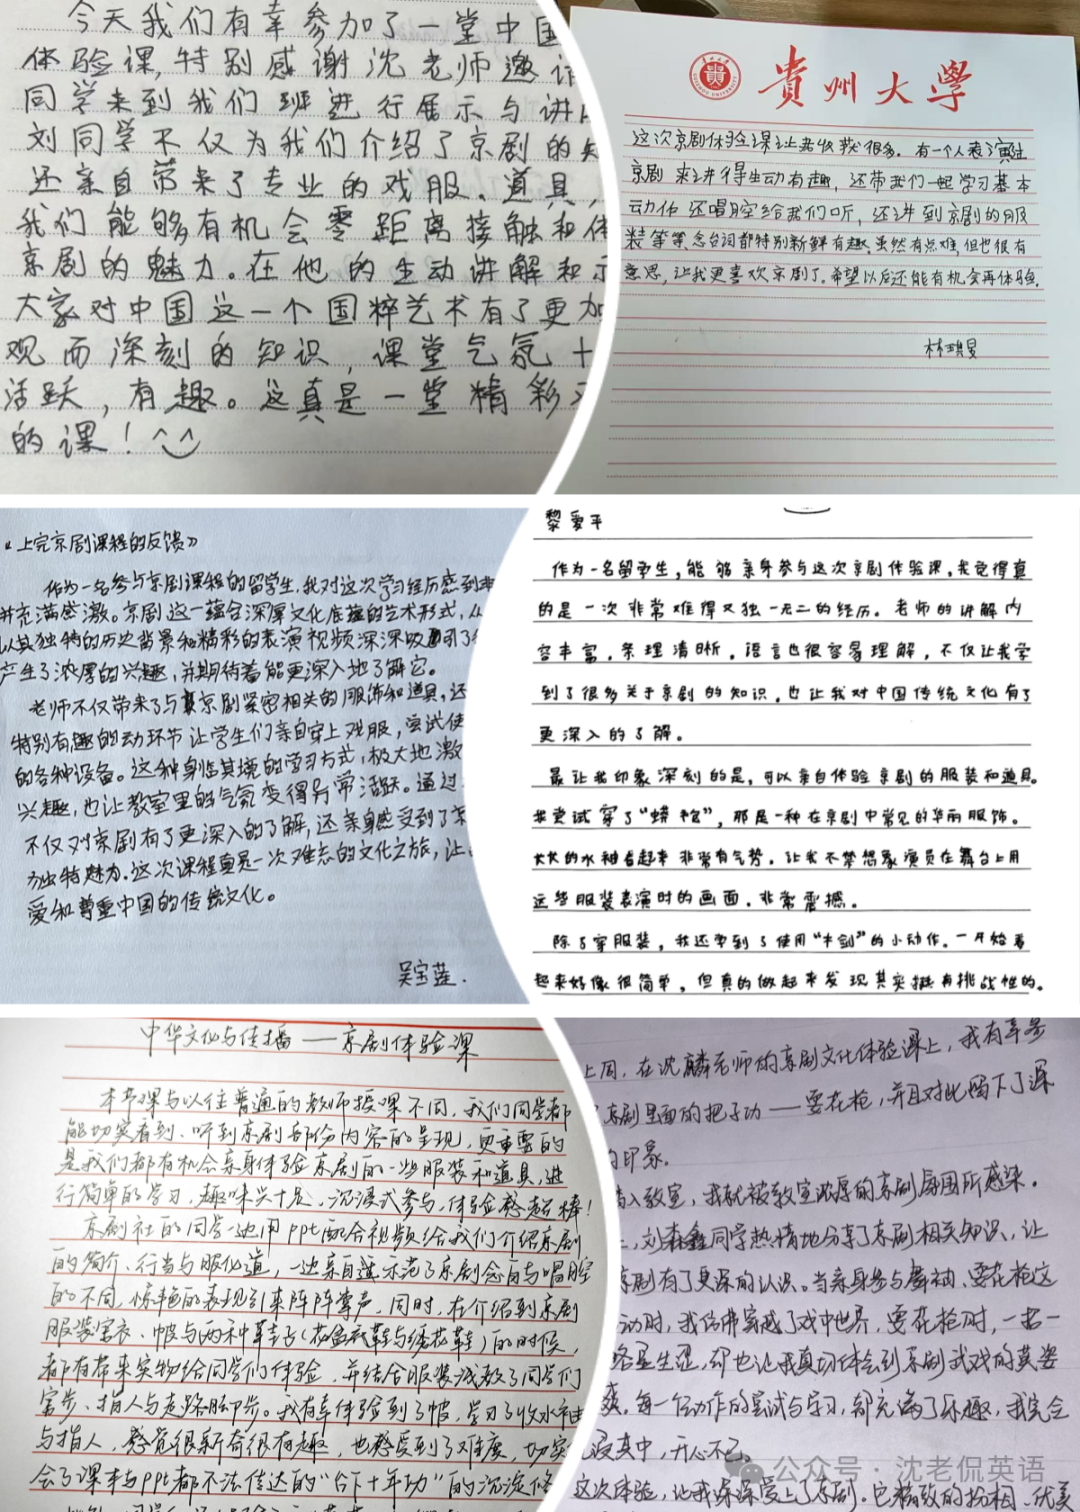 今天我们有幸参加了一堂中国
体验课,特别感谢沈老师邀请
同学来到我们班进行展示与讲
刘同学不仅为我们介绍了京剧的知
还亲自带来了专业的戏服、道具,
我们能够有机会零距离接触和体
京剧的魅力。在他的生动讲解和示
大家对中国这一个国粹艺术有了更加
观而深刻的知识,课堂气氛十
活跃,有趣。这真是一堂精彩
的课!
貴州大學
这次京剧体验课让我收获很多.有一个人表演
京剧 来讲得生动有趣,还带我们一起学习基本
动作 还唱腔给我们听,还讲到京剧的服
装等等,念台词都特别新鲜有趣.虽然有点难,但也很有
意思,让我更喜欢京剧了.希望以后还能有机会再体验.
《上完京剧课程的反馈》
作为一名参与京剧课程的留学生,我对这次学习经历感到非
并充满感激。京剧这一蕴含深厚文化底蕴的艺术形式,从
以其独特的历史背景和精彩的表演视频深深吸引了
产生了浓厚的兴趣,并期待着能更深入地了解它。
老师不仅带来了与京剧紧密相关的服饰和道具,还
特别有趣的动环节让学生们亲自穿上戏服,尝试使
的各种设备。这种身临其境的学习方式,极大地激
兴趣,也让教室里的气氛变得异常活跃。通过
不仅对京剧有了更深入的了解,还亲身感受到了京
独特魅力.这次课程真是一次难忘的文化之旅,让
爱和尊重中国的传统文化。
吴宝莲.
黎爱平
作为一名留学生,能够亲身参与这次京剧体验课,我觉得真
的是一次非常难得又独一无二的经历。老师的讲解内
容丰富,条理清晰,语言也很容易理解,不仅让我学
到了很多关于京剧的知识,也让我对中国传统文化有了
更深入的了解。
最让我印象深刻的是,可以亲自体验京剧的服装和道具。
我尝试穿了“蟒袍”,那是一种在京剧中常见的华丽服饰。
大大的水袖看起来非常有气势,让我不禁想象演员在舞台上用
这些服装表演时的画面,非常震撼。
除了穿服装,我还学到了使用“ 剑”的小动作。一开始看
起来好像很简单,但真的做起来发现其实挺有挑战性的。
中华文化与传播——京剧体验课
本节课与以往普通的教师授课不同,我们同学都
能切实看到、听到京剧部份内容的呈现,更重要的
是我们都有机会亲身体验京剧的一些服装和道具,进
行简单的学习,趣味兴十足、沉浸式参与,体验感超棒!
京剧社的同学一边用PPt配合视频给我们介绍京剧
的简介、行当与服化道,一边亲自示范了京剧念白与唱腔
的不同,惊艳的表现引来阵阵掌声,同时,在介绍到京剧
服装官衣、帔与两种草鞋(花鱼鳞鞋与绣花鞋)的时候,
都有带来实物给同学们体验,并结合服装浅教了同学们
宫步、指人与走路脚步。我有幸体验到了帔,学习了收水袖
与指人,感觉很新奇很有趣,也感受到了难度,切实
会了课本与PPt都不法传达的“台下十年功”的沉淀
上周,在沈麟老师的京剧文化体验课上,我有幸参
京剧里面的把子功——耍花枪,并且对此留下了深
的印象.
踏入教室,我就被教室浓厚的京剧氛围所感染.
上,刘森鑫同学热情地分享了京剧相关知识,让
京剧有了更深的认识。当亲身参与舞袖、耍花枪这
动时,我仿佛穿越了戏中世界,耍花枪时,一招一
略显生涩,却也让我真切体会到京剧武戏的英姿
爽.每一个动作的尝试与学习,都充满了乐趣,我完全
浸其中,开心不已
这次体验,让我深深爱上了京剧.它精致的扮相、优美
公众号·沈老侃英语